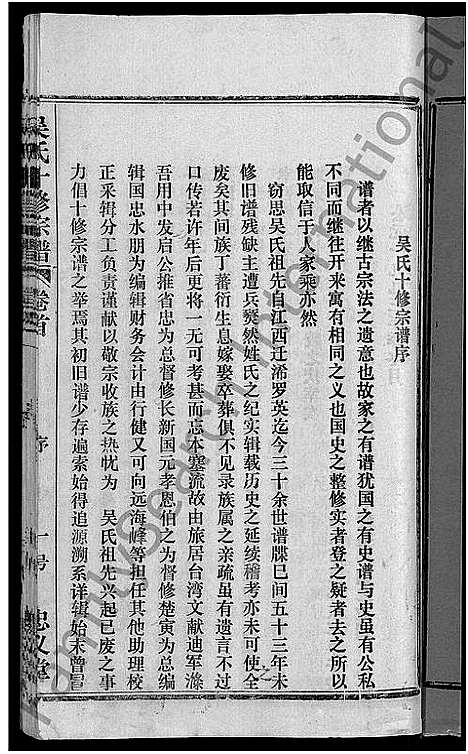 吴氏十修宗谱序
谱者以继古宗法之遗意也故家之有谱犹国之有史谱与史虽有公私
不同而继往开来寓有相同之义也国史之整修实者登之疑者去之所以
能取信于人家乘亦然
窃思吴氏祖先自江西迁浠罗英迄今三十余世谱牒巳间五十三年未
修旧谱残缺主遭兵燹然姓氏之纪实辑载历史之延续稽考亦未可使全
废矣其间族丁蕃衍生息嫁娶卒葬俱不见录族属之亲疏虽有遗言不过
口传若许年后更将一无可考甚而忘本塞流故由旅居台湾文献迪军滌
吾用中发启公推省忠为总督修长新国元孝恩伯之为督修楚寅为总编
辑国忠水朋为编辑财务会计由行健又可向远海峰等担任其他助理校
正采辑分工负责谨献以敬宗收族之热忱为 吴氏祖先兴起已废之事
力倡十修宗谱之举焉其初旧谱少存遍索始得追源溯系详辑始末曾冒
吴氏十修宗谱 卷首 序 一号 忠义堂
FamilySearch International